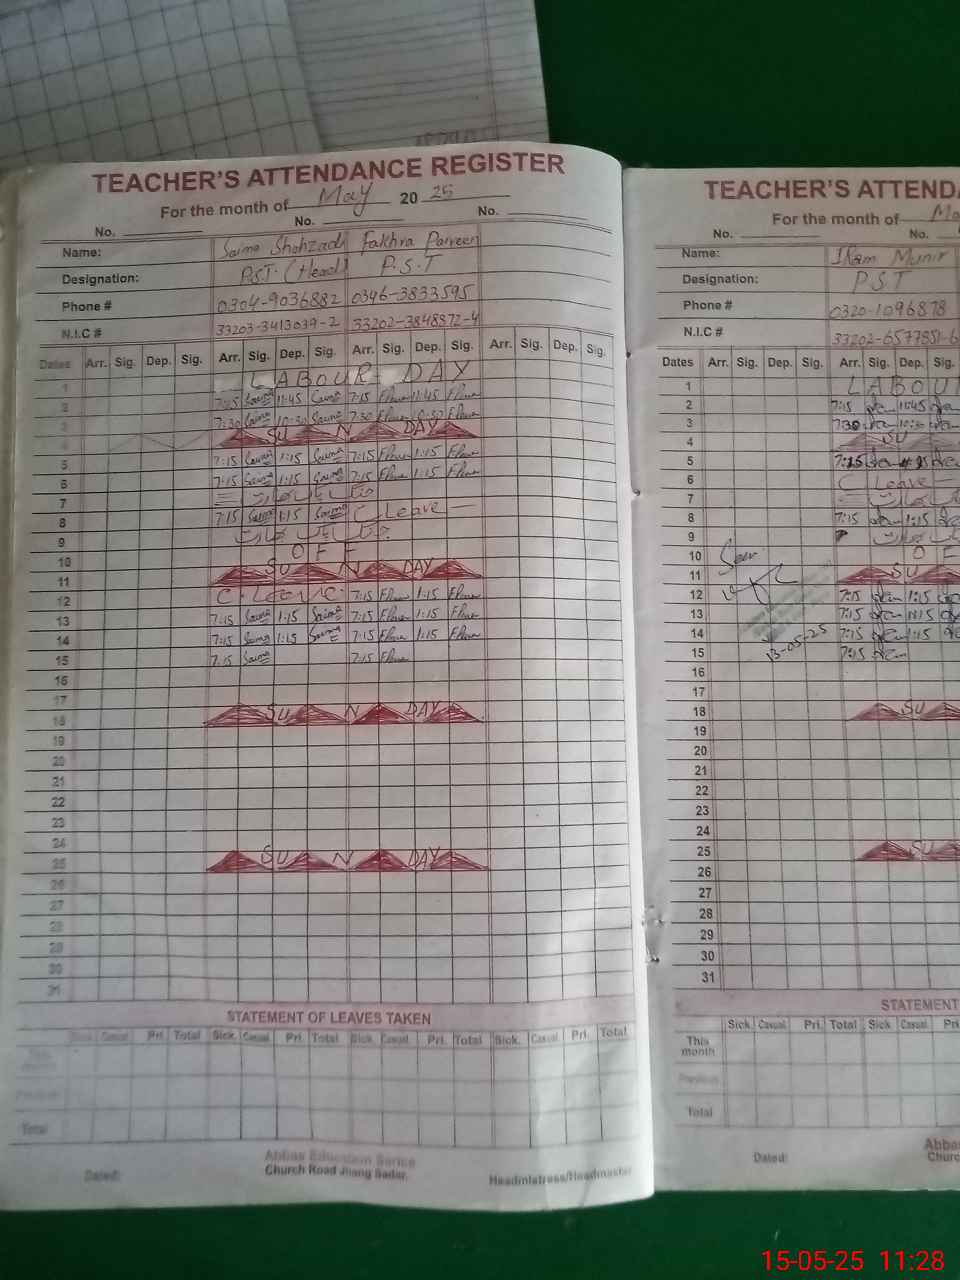 TEACHER'S ATTENDANCE REGISTER
For the month of May 20 25
No. No. No.
Name: Saima Shahzadi Fakhra Parveen
Designation: P.S.T. (Head) P.S.T
Phone # 0304-9036882 0346-3833595
N.I.C # 33203-3413039-2 33202-3848872-4
Dates Arr. Sig. Dep. Sig. Arr. Sig. Dep. Sig. Arr. Sig. Dep. Sig. Arr. Sig. Dep. Sig.
1 LABOUR DAY
2 7:15 Saima 11:45 Saima 7:15 11:45
3 7:30 Saima 10:30 Saima 7:30 10:30
4 SUNDAY
5 7:15 Saima 1:15 Saima 7:15 1:15
6 7:15 Saima 1:15 Saima 7:15 1:15
7
8 7:15 Saima 1:15 Saima C Leave
9
10 OFF
11 SUNDAY
12 C-Leave 7:15 1:15
13 7:15 Saima 1:15 Saima 7:15 1:15
14 7:15 Saima 1:15 Saima 7:15 1:15
15 7:15 Saima 7:15
16
17
18 SUNDAY
19
20
21
22
23
24
25 SUNDAY
26
27
28
29
30
31
STATEMENT OF LEAVES TAKEN
Sick Casual Pri. Total Sick. Casual Pri. Total Sick. Casual Pri. Total Sick. Casual Pri. Total
This month
Previous
Total
Abbas Education Service
Church Road Jhang Sadar.
Dated: Headmistress/Headmaster
TEACHER'S ATTEND
For the month of Ma
No. No.
Name: Iram Munir
Designation: PST
Phone # 0320-1096878
N.I.C # 33202-6577851-6
Dates Arr. Sig. Dep. Sig. Arr. Sig. Dep. Sig.
1 LABOU
2 7:15 11:45
3 7:30 10:30
4 SU
5 7:15
6 C Leave
7
8 7:15 1:15
9
10 OF
11 SU
12 7:15 1:15
13 7:15 1:15
14 7:15 1:15
15 7:15
Seen
13-05-25
16
17
18 SU
19
20
21
22
23
24
25 SU
26
27
28
29
30
31
STATEMENT
Sick Casual Pri. Total Sick Casual Pri.
This month
Previous
Total
Abbas
Churc
Dated:
15-05-25 11:28